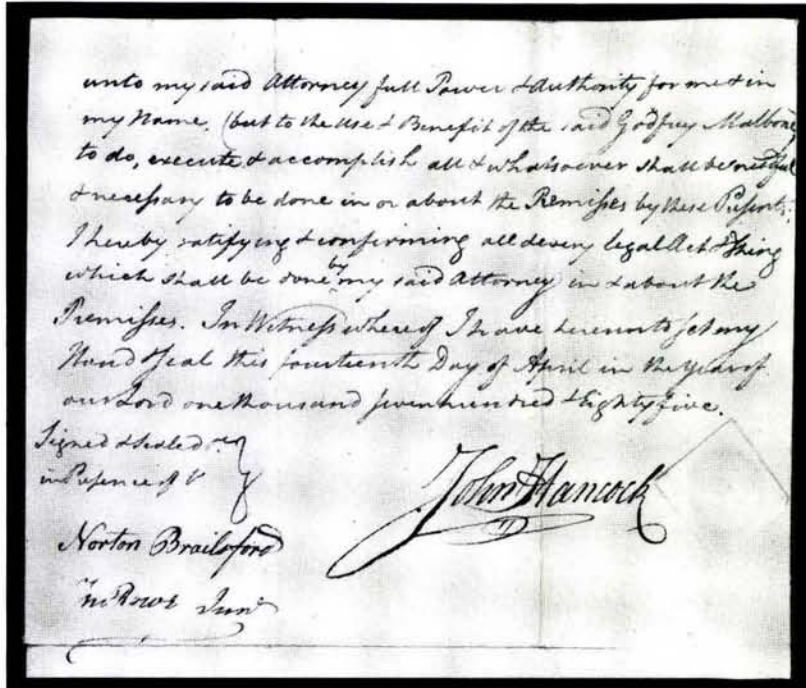 unto my said Attorney full Power & Authority for me & in
my Name, (but to the Use & Benefit of the said Godfrey Malbone
to do, execute & accomplish all & whatsoever shall be needful
& necessary to be done in or about the Premisses by these Presents;
I hereby ratifying & confirming all & every legal Act & Thing
which shall be done by my said Attorney in & about the
Premisses. In Witness whereof I have hereunto set my
Hand & Seal this fourteenth Day of April in the Year of
our Lord one thousand seven hundred & Eighty five.
Signed & Sealed
in Presence of
John Hancock
Norton Brailsford
Jno Rowe Junr